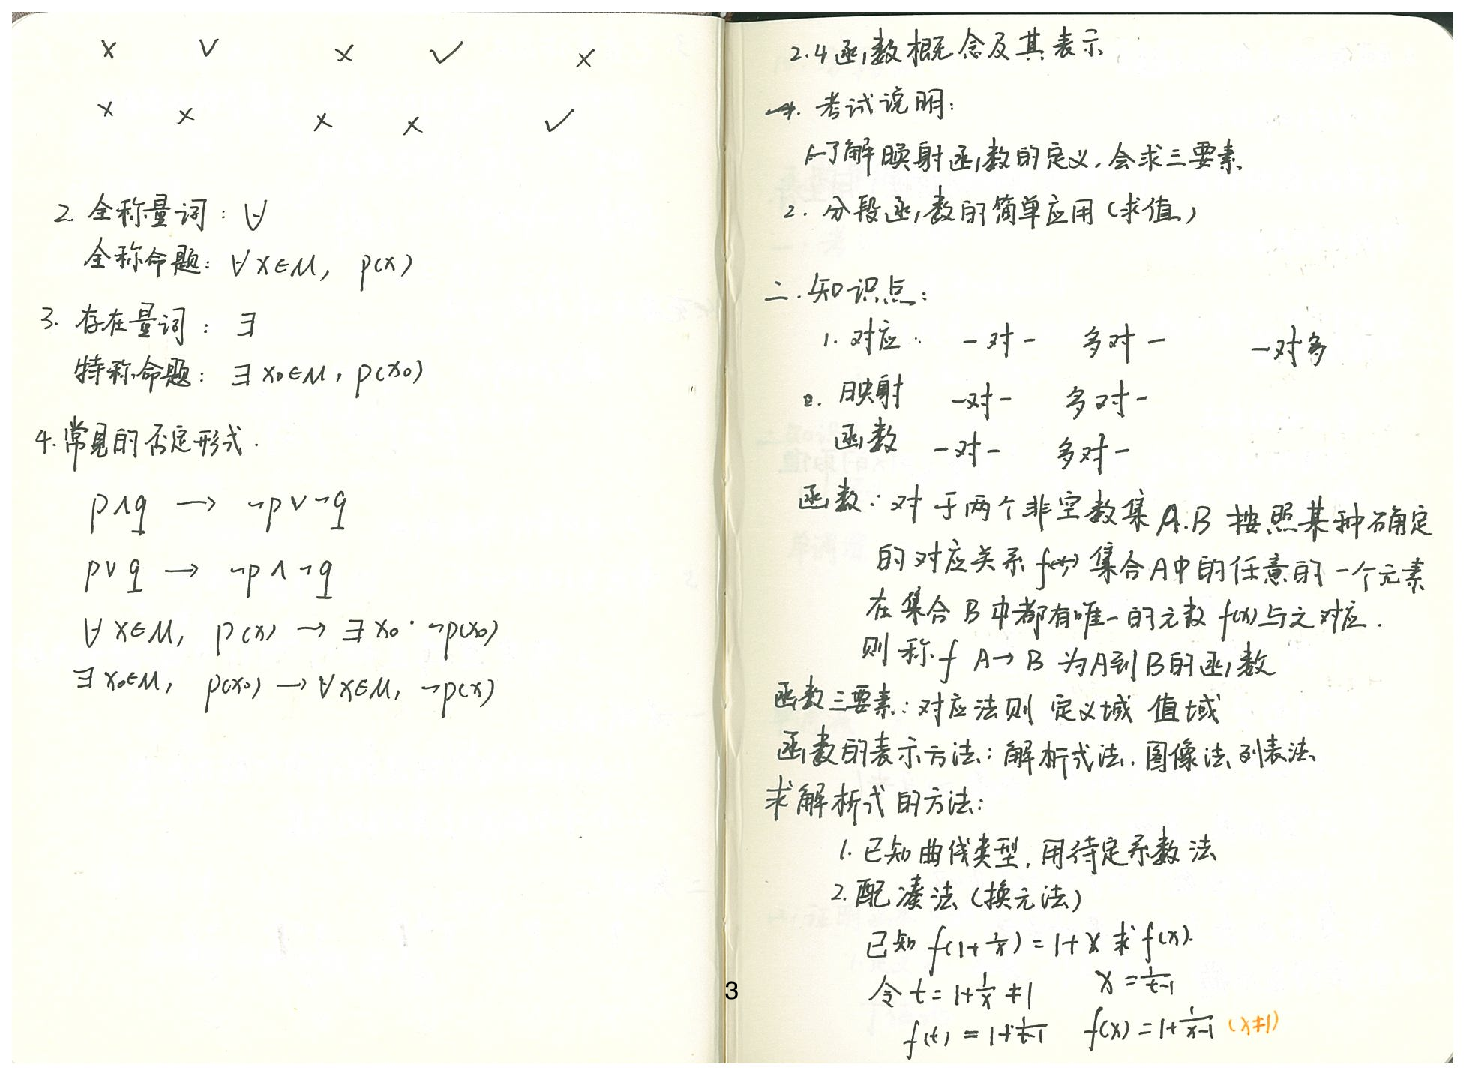 × √ × √ ×
× × × × √
2 全称量词：∀
全称命题：∀x∈M, p(x)
3. 存在量词：∃
特称命题：∃x₀∈M, p(x₀)
4.常见的否定形式.
p∧q → ¬p∨¬q
p∨q → ¬p∧¬q
∀x∈M, p(x) → ∃x₀·¬p(x₀)
∃x₀∈M, p(x₀) → ∀x∈M, ¬p(x)
2.4函数概念及其表示
一. 考试说明：
1.了解映射函数的定义.会求三要素.
2. 分段函数的简单应用(求值)
二.知识点：
1. 对应. 一对一 多对一 一对多
2. 映射 一对一 多对一
函数 一对一 多对一
函数：对于两个非空数集A.B 按照某种确定
的对应关系 f(x) 集合A中的任意的一个元素
在集合B中都有唯一的元数 f(x)与之对应.
则称f A→B 为A到B的函数
函数三要素：对应法则 定义域 值域
函数的表示方法：解析式法.图像法.列表法
求解析式的方法：
1. 已知曲线类型,用待定系数法
2. 配凑法(换元法)
已知 f(1+1/x)=1+x 求f(x).
令 t=1+1/x≠1 x=1/(t-1)
f(t)=1+1/(t-1) f(x)=1+1/(x-1) (x≠1)
3